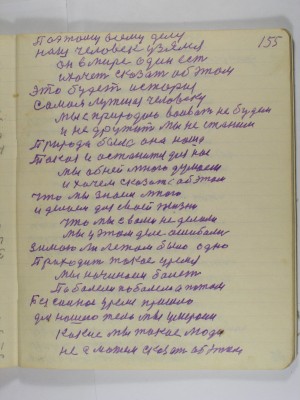 155
Поэтому всему делу
наш человек узяме
он в мире один ест
и хочет сказат об этом
Это будет история
Самая лутшая человеку
Мы с природою воеват не будим
и не дружит мы не станим
Природа была она наша
Такая и останится для нас
Мы об ней много думаем
и хочем сказат об этом
Что мы знаем много
и делаем для своей жизни
Что мы с вами не делали
Мы у этом деле ошибалис
Зимою ли летом было одно
Приходит такое уремя
Мы начинаим болет
Поболеем поболеем а потом
уремя пришло
для нашего тела мы умераим
Какие мы такие люди
не можем сказат об этом